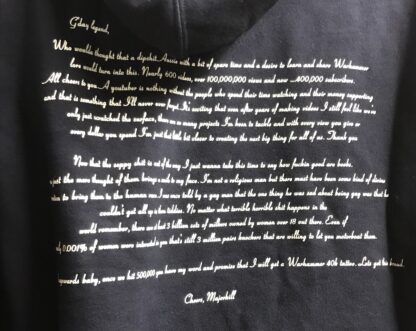 G'day legend,
Who would've thought that a dipshit Aussie with a bit of spare time and a desire to learn and share Warhammer
lore would turn into this. Nearly 600 videos, over 100,000,000 views and over 400,000 subscribers.
All cheers to you. A youtuber is nothing without the people who spend their time watching and their money supporting,
and that is something that I'll never ever forget. It's exciting that even after years of making videos I still feel like we're
only just scratched the surface, there are so many projects I'm keen to tackle and with every view you give or
every dollar you spend I'm just that little bit closer to creating the next big thing for all of us. Thank you
Now that the sappy shit is out of the way I just wanna take this time to say how fuckin good are boobs.
just the mere thought of them brings a smile to my face. I'm not a religious man but there must have been some kind of divine
to bring them to the human race. I was once told by a gay man that the one thing he was sad about being gay was that he
couldn't get all up in them tiddies. No matter what terrible horrible shit happens in the
world remember, there are that 3 billion sets of milkers owned by women over 18 out there. Even if
0.001% of women were interested in you that's still 3 million pairs knockers that are willing to let you motorboat them.
upwards baby, once we hit 500,000 you have my word and promise that I will get a Warhammer 40k tattoo. Lets get this bread.
Cheers, Majorkill